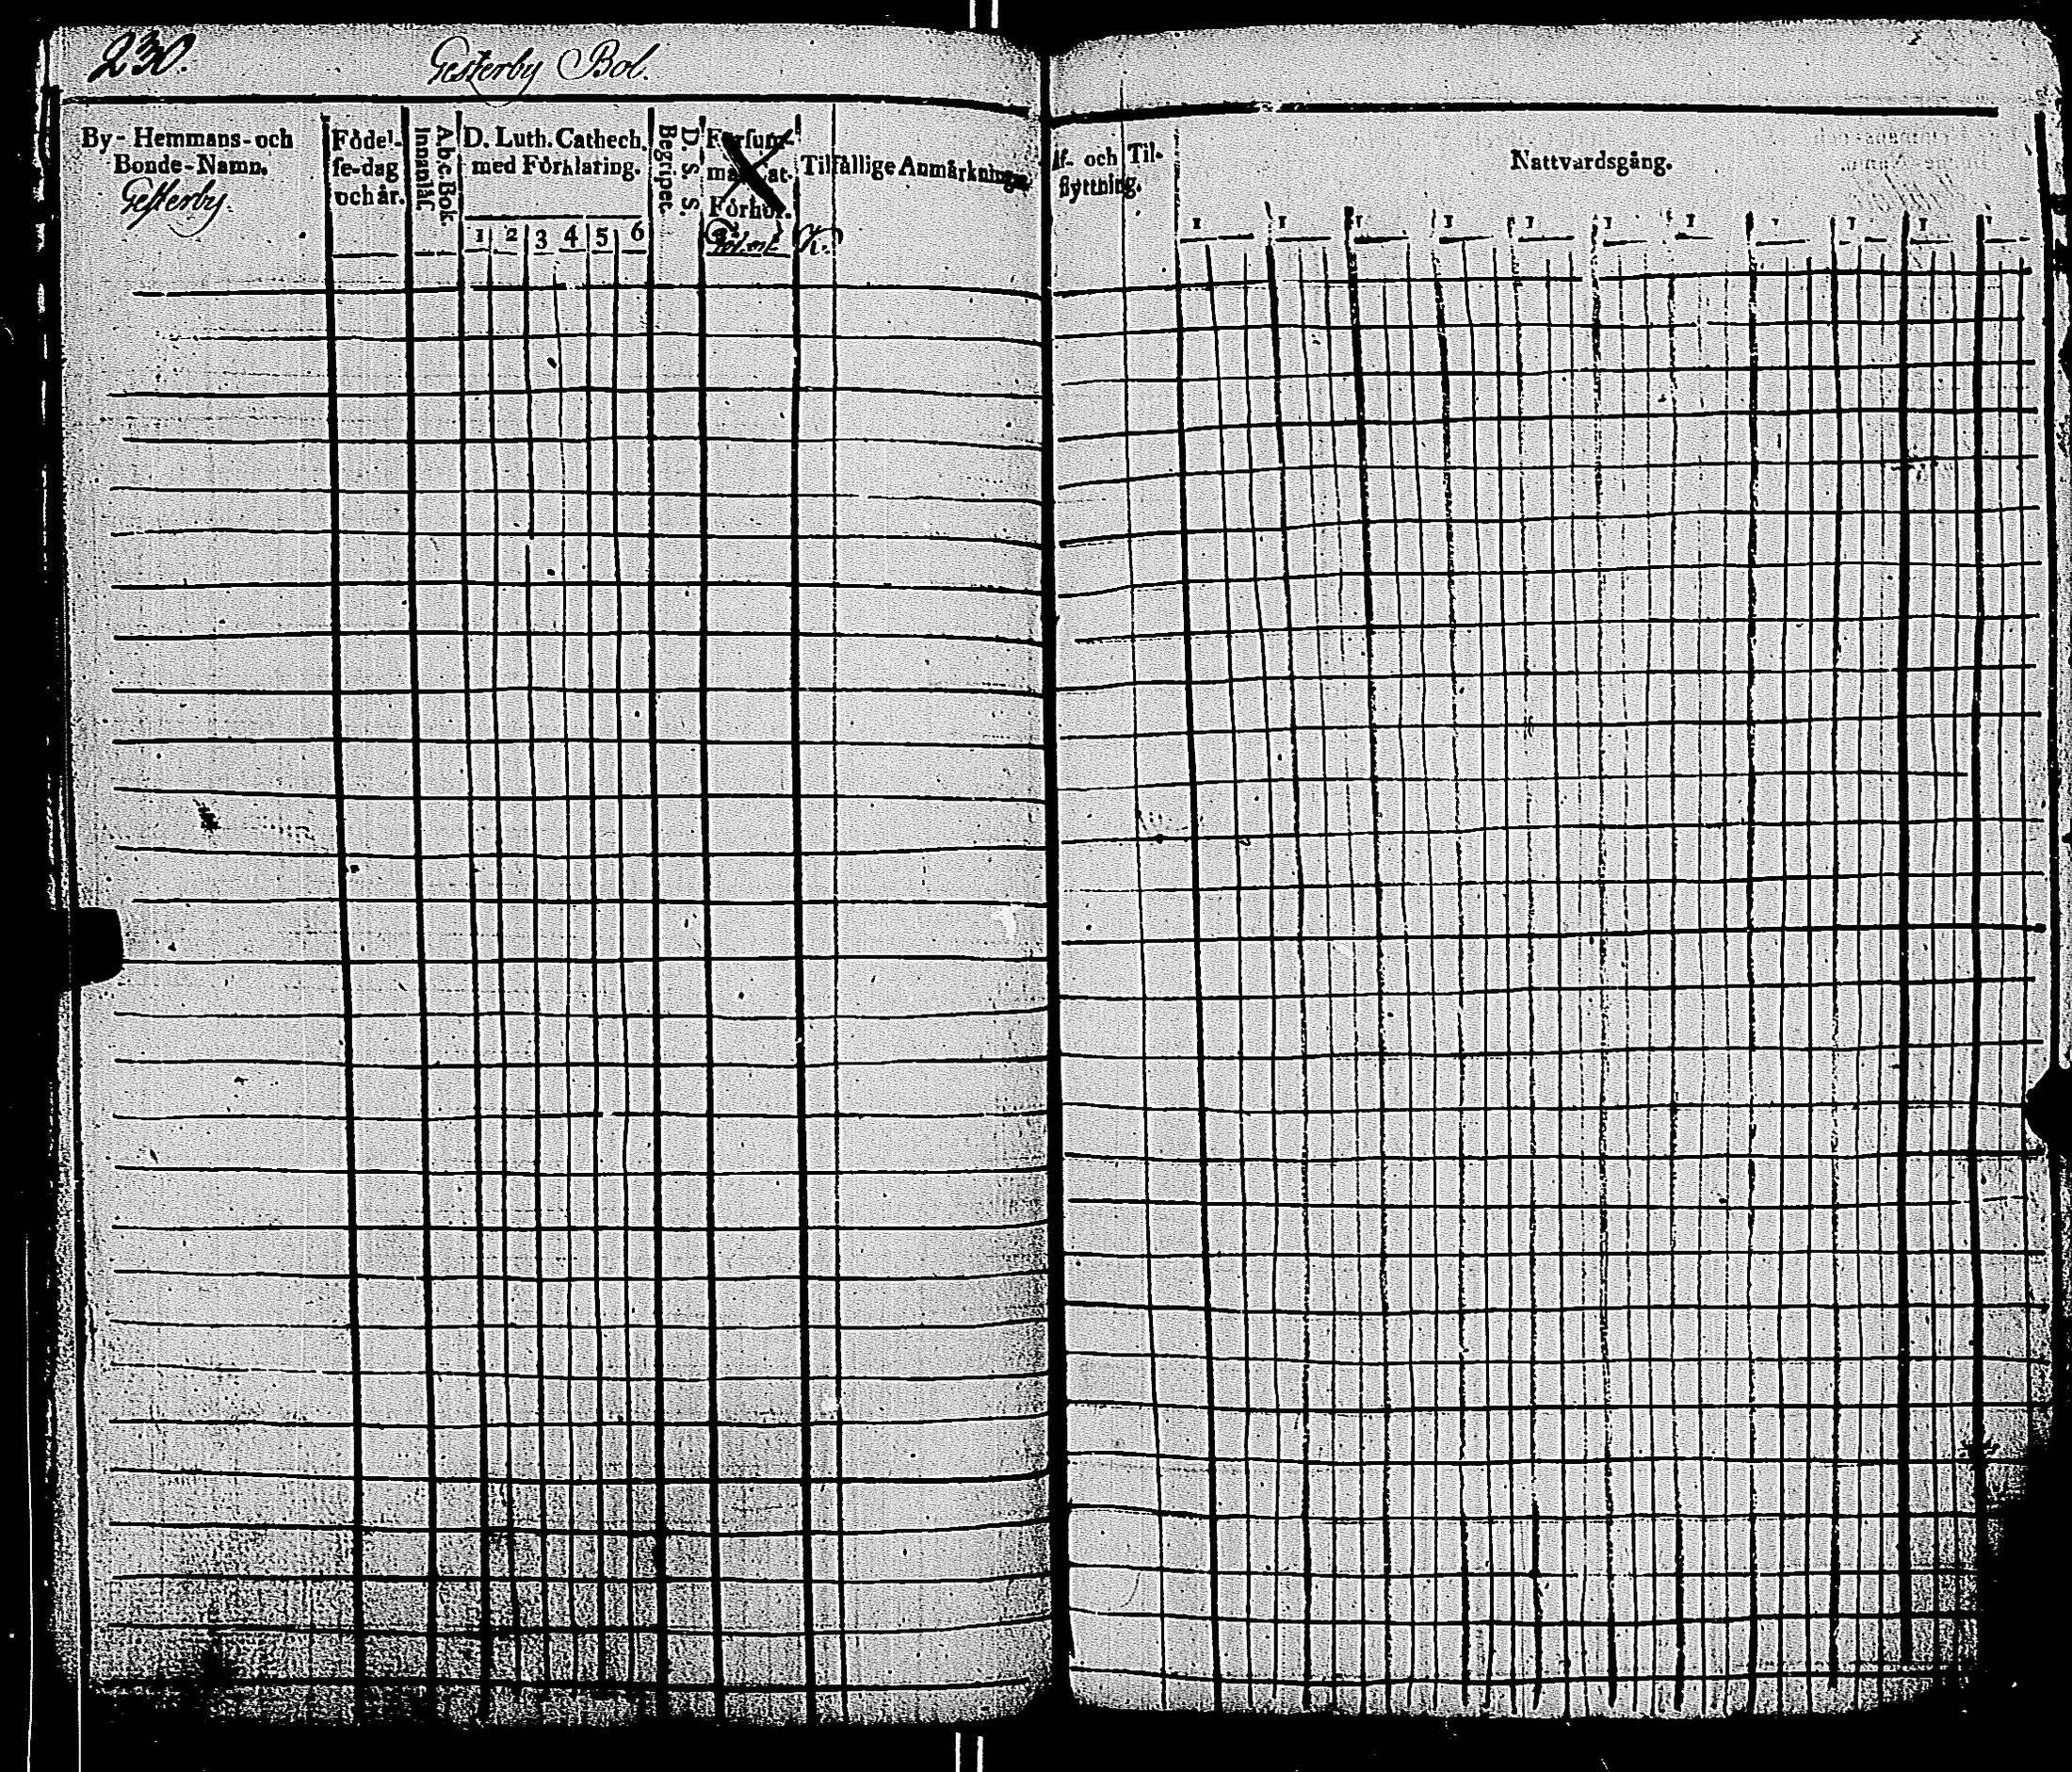 230.
Gesterby Bol.
By-Hemmans-och
Bonde-Namn.
Gesterby.
Födel-
se-dag
och år.
A.b.c. Bok.
Innanläs.
D. Luth. Cathech.
med Förklaring.
1 2 3 4 5 6
D. S. S.
Begripet.
Försum-
Förhör.
K.
Tilfällige Anmärkningar
Af- och Til-
flyttning.
Nattvardsgång.
1 1 1 1 1 1 1 1 1 1 1